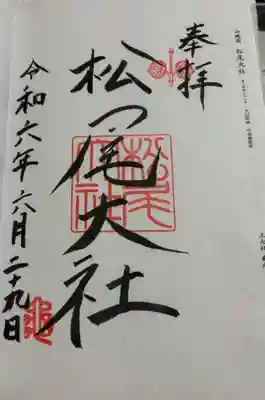 松尾大社
奉拝
松尾大社
松尾大社
令和六年六月二十九日